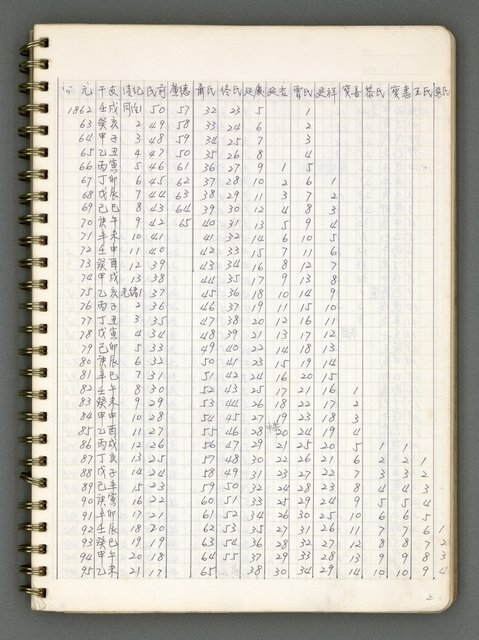 公元 干支 清紀 民前 蕭氏 佟氏 延廣 延吉 曹氏 延祥 寶善 蔡氏 寶惠 王氏
1862 壬戌 同治1 50 57 32 23 5 1
63 癸亥 2 49 58 33 24 6 2
64 甲子 3 48 59 34 25 7 3
65 乙丑 4 47 50 35 26 8 4
66 丙寅 5 46 61 36 27 9 1 5
67 丁卯 6 45 62 37 28 10 2 6 1
68 戊辰 7 44 63 38 29 11 3 7 2
69 己巳 8 43 64 39 30 12 4 8 3
70 庚午 9 42 65 40 31 13 5 9 4
71 辛未 10 41 41 32 14 6 10 5
72 壬申 11 40 42 33 15 7 11 6
73 癸酉 12 39 43 34 16 8 12 7
74 甲戌 13 38 44 35 17 9 13 8
75 乙亥 光緒1 37 45 36 18 10 14 9
76 丙子 2 36 46 37 19 11 15 10
77 丁丑 3 35 47 38 20 12 16 11
78 戊寅 4 34 48 39 21 13 17 12
79 己卯 5 33 49 40 22 14 18 13
80 庚辰 6 32 50 41 23 15 19 14
81 辛巳 7 31 51 42 24 16 20 15
82 壬午 8 30 52 43 25 17 21 16 1
83 癸未 9 29 53 44 26 18 22 17 2
84 甲申 10 28 54 45 27 19 23 18 3
85 乙酉 11 27 55 46 28 20 24 19 4
86 丙戌 12 26 56 47 29 21 25 20 5 1 1
87 丁亥 13 25 57 48 30 22 26 21 6 2 2 1
88 戊子 14 24 58 49 31 23 27 22 7 3 3 2
89 己丑 15 23 59 50 32 24 28 23 8 4 4 3
90 庚寅 16 22 60 51 33 25 29 24 9 5 5 4
91 辛卯 17 21 61 52 34 26 30 25 10 6 6 5
92 壬辰 18 20 62 53 35 27 31 26 11 7 7 6 1
93 癸巳 19 19 63 54 36 28 32 27 12 8 8 7 2
94 甲午 20 18 64 55 37 29 33 28 13 9 9 8 3
95 乙未 21 17 65 38 30 34 29 14 10 10 9 4
2